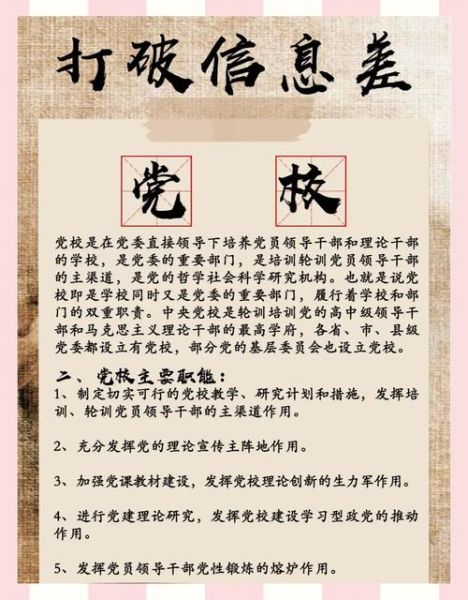 打破信息差
党校
党校是在党委直接领导下培养党员领导干部和理论干部
的学校，是党委的重要部门，是培训轮训党员领导干部
的主渠道，是党的哲学社会科学研究机构。也就是说党
校即是学校同时又是党委的重要部门，履行着学校和部
门的双重职责。中央党校是轮训培训党的高中级领导干
部和马克思主义理论干部的最高学府，各省、市、县级
党委都设立有党校，部分党的基层委员会也设立党校。
二、党校主要职能：
1、制定切实可行的党校教学、研究计划和措施，发挥培
训、轮训党员领导干部的主渠道作用。
2、充分发挥党的理论宣传主阵地作用。
3、加强党课教材建设，发挥党校理论创新的生力军作用。
4、进行党建理论研究，发挥党校建设学习型政党的推动
作用。
5、发挥党员领导干部党性锻炼的熔炉作用。